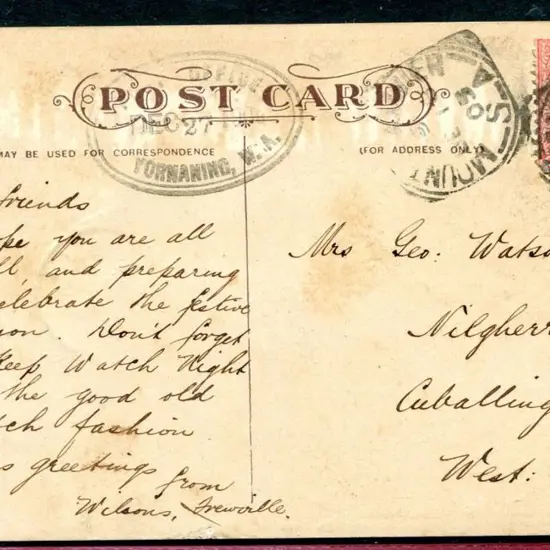 POST CARD
MAY BE USED FOR CORRESPONDENCE
(FOR ADDRESS ONLY)
OFFICE
DEC 27
YORNANING, W.A.
S.A.
MOUNT
friends
you are all
and preparing
celebrate the festive
Don't forget
keep Watch Night
the good old
fashion
greetings from
Wilsons, Frewville.
Mrs Geo: Watso
Nilgherr
Cuballing
West: